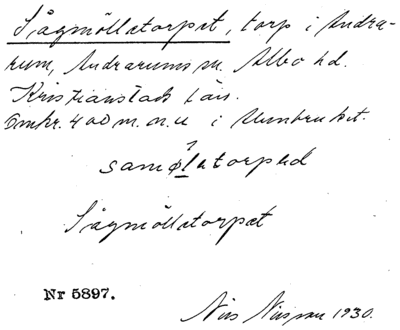 Sågmöllatorpet, torp i Andra-
rum, Andrarums sn. Albo hd.
Kristianstads län.
Omkr. 400 m. ö. u i
samølatorped
Sågmöllatorpet
Nr 5897.
Nils Nilsson 1930.